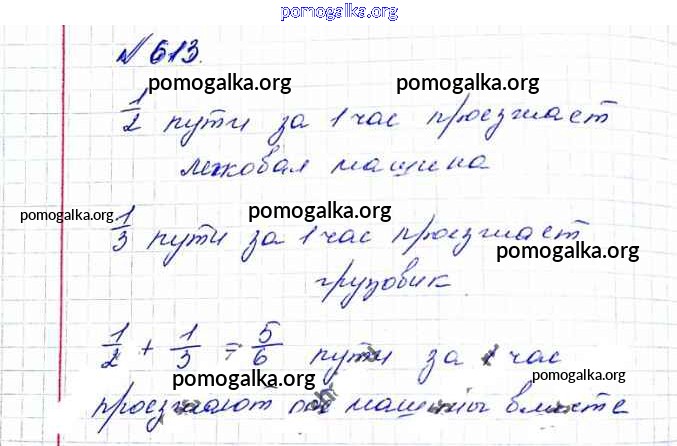 pomogalka.org
№ 613.
pomogalka.org pomogalka.org
1/2 пути за 1 час проезжает
легковая машина
pomogalka.org pomogalka.org
1/3 пути за 1 час проезжает
pomogalka.org
грузовик
1/2 + 1/3 = 5/6 пути за 1 час
pomogalka.org pomogalka.org
проезжают машины вместе